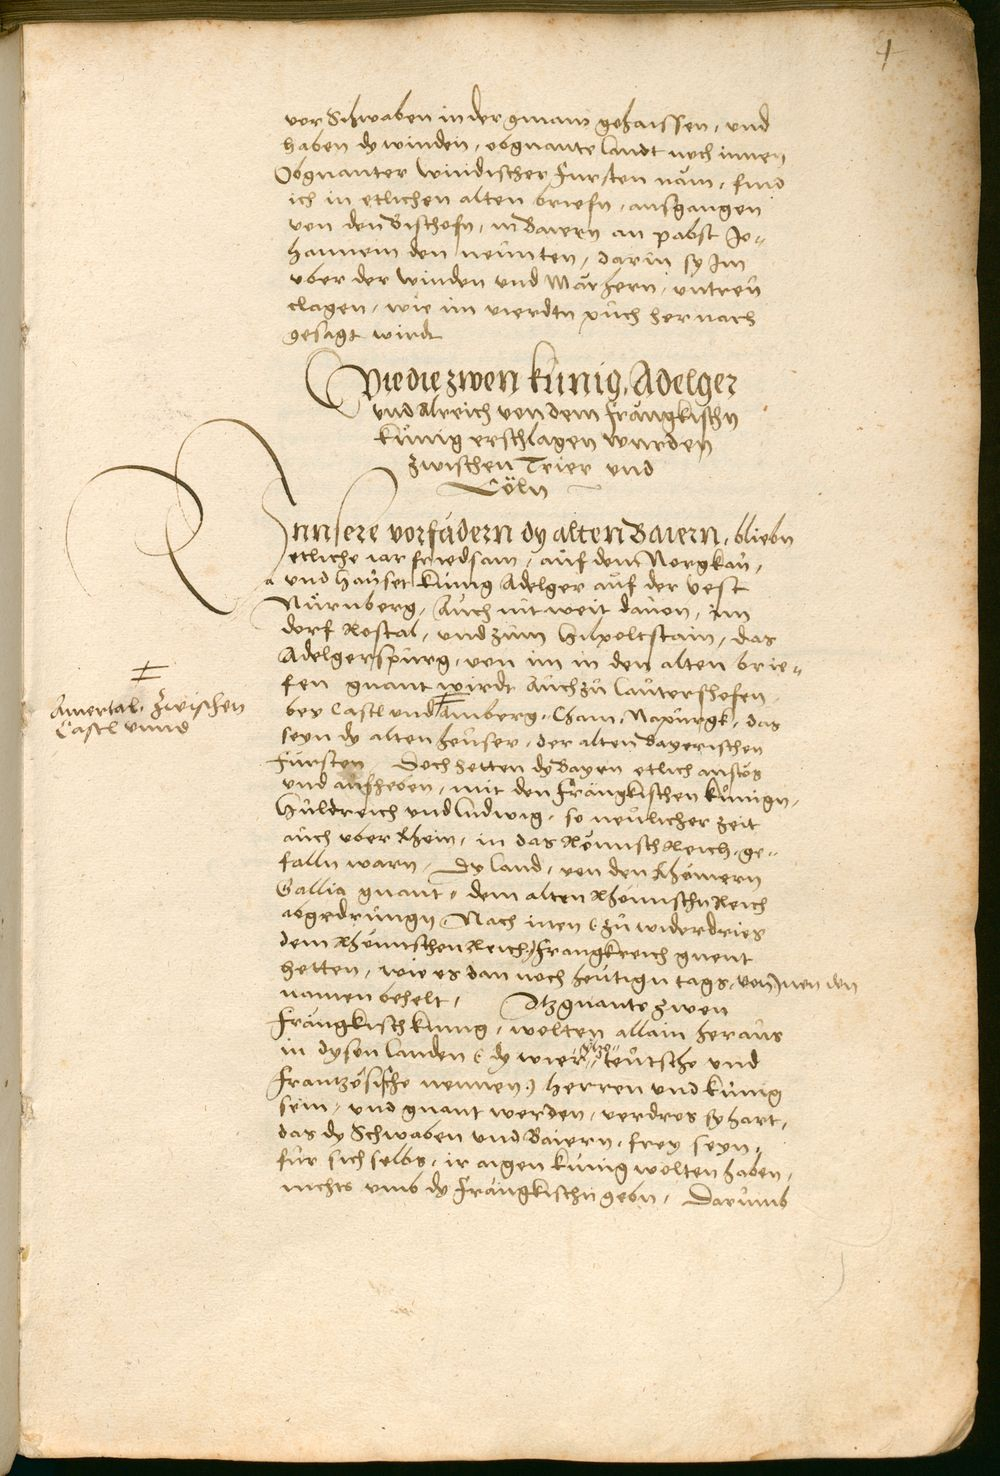 4
vor Schwaben in der gmain gehaissen, und
haben dy winden, obgnante landt noch innen
Obgnanter windischer Fursten nam, find
ich in etlichen alten briefn, ausgangen
von den Bischofn, in Baiern an pabst Jo-
hannem den neunten, darin sy im
vber der winden und Märhern, untreu
clagen, wie im vierdtn puch hernach
gesagt wirdt
Wie die zwen künig, Adelger
und Alreich von dem Frängkischn
künig erschlagen wurden
zwischen Trier und
Cöln
Unnsere vorfadern dy alten Baiern, bliebn
etliche iar friedsam, auf dem Norgkau,
und hauset künig Adelger auf der vest
Nürnberg, Auch nit weit davon, im
dorf Rostal, und zum Hilpoltstain, das
Adelgerspurg, von im in den alten brie-
fen gnant wirdt Auch zu Lautershofen
bey Castl und Amberg, Cham, Napurgk, das
seyn dy alten heuser, der alten Bayerischen
Fürsten Doch hetten dy Bayrn etlich anstös
und aufheben, mit den Frängkischen künign,
Huldreich und Ludwig, so neulicher zeit
auch vber Rhein, in das Römisch Reich, ge-
falln warn, Dy land, von den Rhömern
Gallia gnant, dem alten Rhömischn Reich
abgedrungn, Nach inen (zu widerdries
dem Rhömischen Reich) Frangkreich gnent
hetten, wie es dan noch heutign tags, von inen den
namen behelt, Itzgnante zwen
Frängkisch kunig, wolten allain heraus
in dysen landen (dy wier teutsche und
Frantzösische nennen) herren und künig
sein, und gnant werden, verdros sy hart,
das dy Schwaben und Baiern, frey seyn,
für sich selbs, ir aigen künig wolten haben,
nichts umb dy Frängkischn gebn, Darumb
Amertal, zwischen
Castl unnd